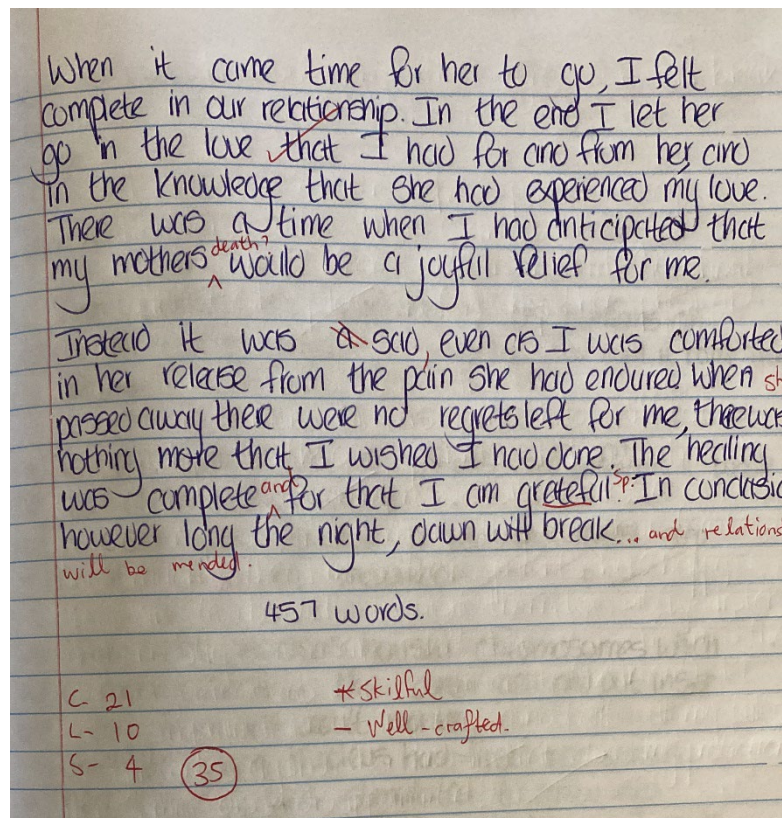 When it came time for her to go, I felt
complete in our relationship. In the end I let her
go in the love that I had for and from her and
in the knowledge that she had experienced my love.
There was a time when I had anticipated that
my mothers death? would be a joyful relief for me.
Instead it was a sad, even as I was comforted
in her release from the pain she had endured when
passed away there were no regrets left for me, there was
nothing more that I wished I had done. The healing
was complete and for that I am gratefull. sp In
however long the night, dawn will break... and
will be mended.
457 words.
C 21
*Skilful
L- 10
- Well-crafted.
S- 4
35